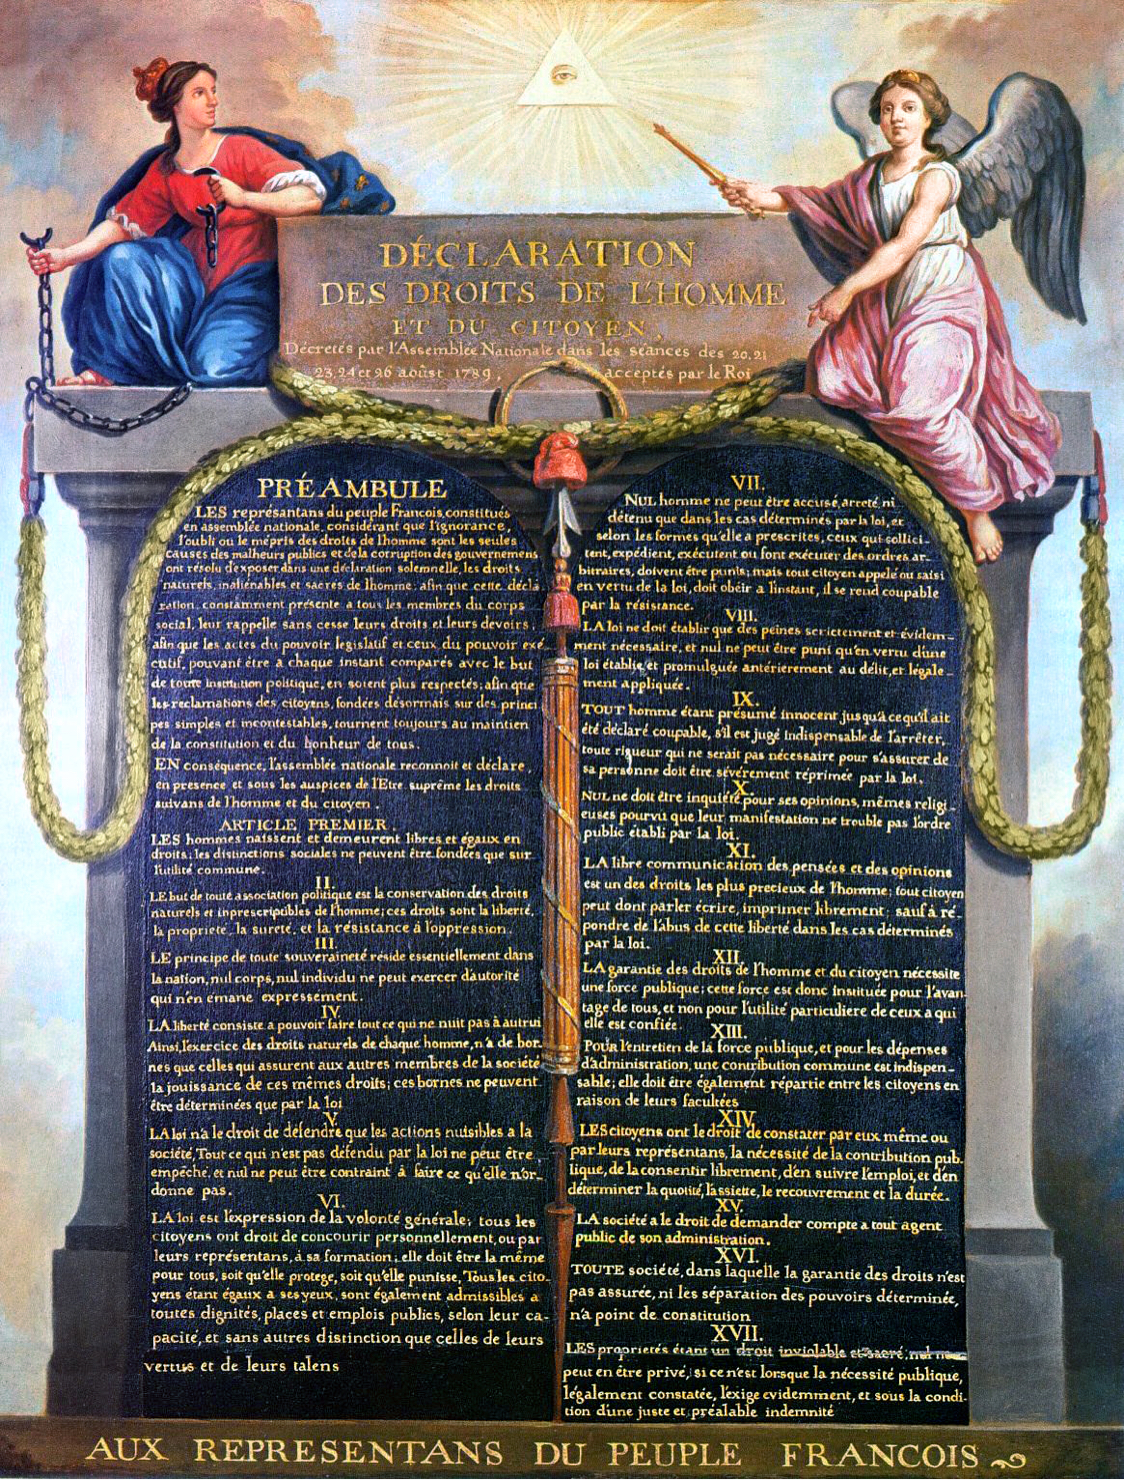 DÉCLARATION
DES DROITS DE L'HOMME
ET DU CITOYEN,
Décretés par l'Assemblée Nationale dans les séances des 20. 21
23, 24 et 26 août 1789, acceptés par le Roi
PRÉAMBULE
LES représantans du peuple François, constitués
en assemblée nationale, considérant que l'ignorance,
l'oubli ou le mépris des droits de l'homme sont les seules
causes des malheurs publics et de la corruption des gouvernemens
ont résolu d'exposer dans une déclaration solemnelle, les droits
naturels, inaliénables et sacrés de l'homme, afin que cette décla
ration, constamment présente a tous les membres du corps
social, leur rappelle sans cesse leurs droits et leurs devoirs,
afin que les actes du pouvoir législatif et ceux du pouvoir exé-
cutif, pouvant être a chaque instant comparés avec le but
de toute institution politique, en soient plus respectés; afin que
les reclamations des citoyens, fondées désormais sur des princi
pes simples et incontestables, tournent toujours au maintien
de la constitution et du bonheur de tous.
EN conséquence, l'assemblée nationale reconnoit et déclare,
en presence et sous les auspices de l'Etre suprême les droits
suivans de l'homme et du citoyen.
ARTICLE PREMIER.
LES hommes naissent et demeurent libres et égaux en
droits; les distinctions sociales ne peuvent être fondées que sur
l'utilité commune.
II.
LE but de toute association politique est la conservation des droits
naturels et inprescriptibles de l'homme; ces droits sont la liberté,
la propriété, la sureté, et la résistance à l'oppression.
III.
LE principe de toute souveraineté réside essentiellement dans
la nation, nul corps, nul individu ne peut exercer d'autorité
qui n'en émane expressement.
IV.
LA liberté consiste a pouvoir faire tout ce qui ne nuit pas à autrui
Ainsi, l'exercice des droits naturels de chaque homme, n'a de bor-
nes que celles qui assurent aux autres membres de la société
la jouissance de ces mêmes droits; ces bornes ne peuvent
être déterminées que par la loi
V.
LA loi n'a le droit de défendre que les actions nuisibles a la
société, Tout ce qui n'est pas défendu par la loi ne peut être
empêché, et nul ne peut être contraint à faire ce qu'elle n'or-
donne pas.
VI.
LA loi est l'expression de la volonté générale; tous les
citoyens ont droit de concourir personnellement, ou par
leurs représentans, à sa formation; elle doit être la même
pour tous, soit qu'elle protege, soit qu'elle punisse, Tous les cito-
yens étant égaux a ses yeux, sont également admissibles a
toutes dignités, places et emplois publics, selon leur ca-
pacité, et sans autres distinction que celles de leurs
vertus et de leurs talens
VII.
NUL homme ne peut être accusé, arreté, ni
détenu que dans les cas déterminés par la loi, et
selon les formes qu'elle a prescrites, ceux qui sollici-
tent, expédient, exécutent ou font exécuter des ordres ar-
bitraires, doivent être punis; mais tout citoyen appelé ou saisi
en vertu de la loi, doit obéir a l'instant, il se rend coupable
par la résistance.
VIII.
LA loi ne doit établir que des peines strictement et évidem-
ment nécessaire, et nul ne peut être puni qu'en vertu d'une
loi établie, et promulguée antérierement au délit, et légale-
ment appliquée.
IX.
TOUT homme étant présumé innocent jusqu'a ce qu'il ait
été déclaré coupable, s'il est jugé indispensable de l'arrêter,
toute rigueur qui ne serait pas nécessaire pour s'assurer de
sa personne doit être sévèrement réprimée par la loi.
X.
NUL ne doit être inquiété pour ses opinions, mêmes religi-
euses pourvu que leur manifestation ne trouble pas l'ordre
public établi par la loi.
XI.
LA libre communication des pensées et des opinions
est un des droits les plus precieux de l'homme; tout citoyen
peut dont parler écrire, imprimer librement: sauf à ré-
pondre de l'abus de cette liberté dans les cas déterminés
par la loi.
XII.
LA garantie des droits de l'homme et du citoyen nécessite
une force publique; cette force est donc instituée pour l'avan-
tage de tous, et non pour l'utilité particuliere de ceux a qui
elle est confiée.
XIII.
POUR l'entretien de la force publique, et pour les dépenses
d'administration, une contribution commune est indispen-
sable; elle doit être également répartie entre les citoyens en
raison de leurs facultées
XIV.
LES citoyens ont le droit de constater par eux même ou
par leurs représentans, la nécessité de la contribution pub-
lique, de la consentir librement, d'en suivre l'emploi, et d'en
déterminer la quotité, l'assiette, le recouvrement et la durée.
XV.
LA société a le droit de demander compte a tout agent
public de son administration.
XVI.
TOUTE société, dans laquelle la garantie des droits n'est
pas assurée, ni les séparation des pouvoirs déterminée,
n'a point de constitution
XVII.
LES proprietés étant un droit inviolable et sacré, nul ne
peut en être privé, si ce n'est lorsque la nécessité publique,
légalement constatée, l'exige evidemment, et sous la condi-
tion d'une juste et préalable indemnité
AUX REPRESENTANS DU PEUPLE FRANCOIS